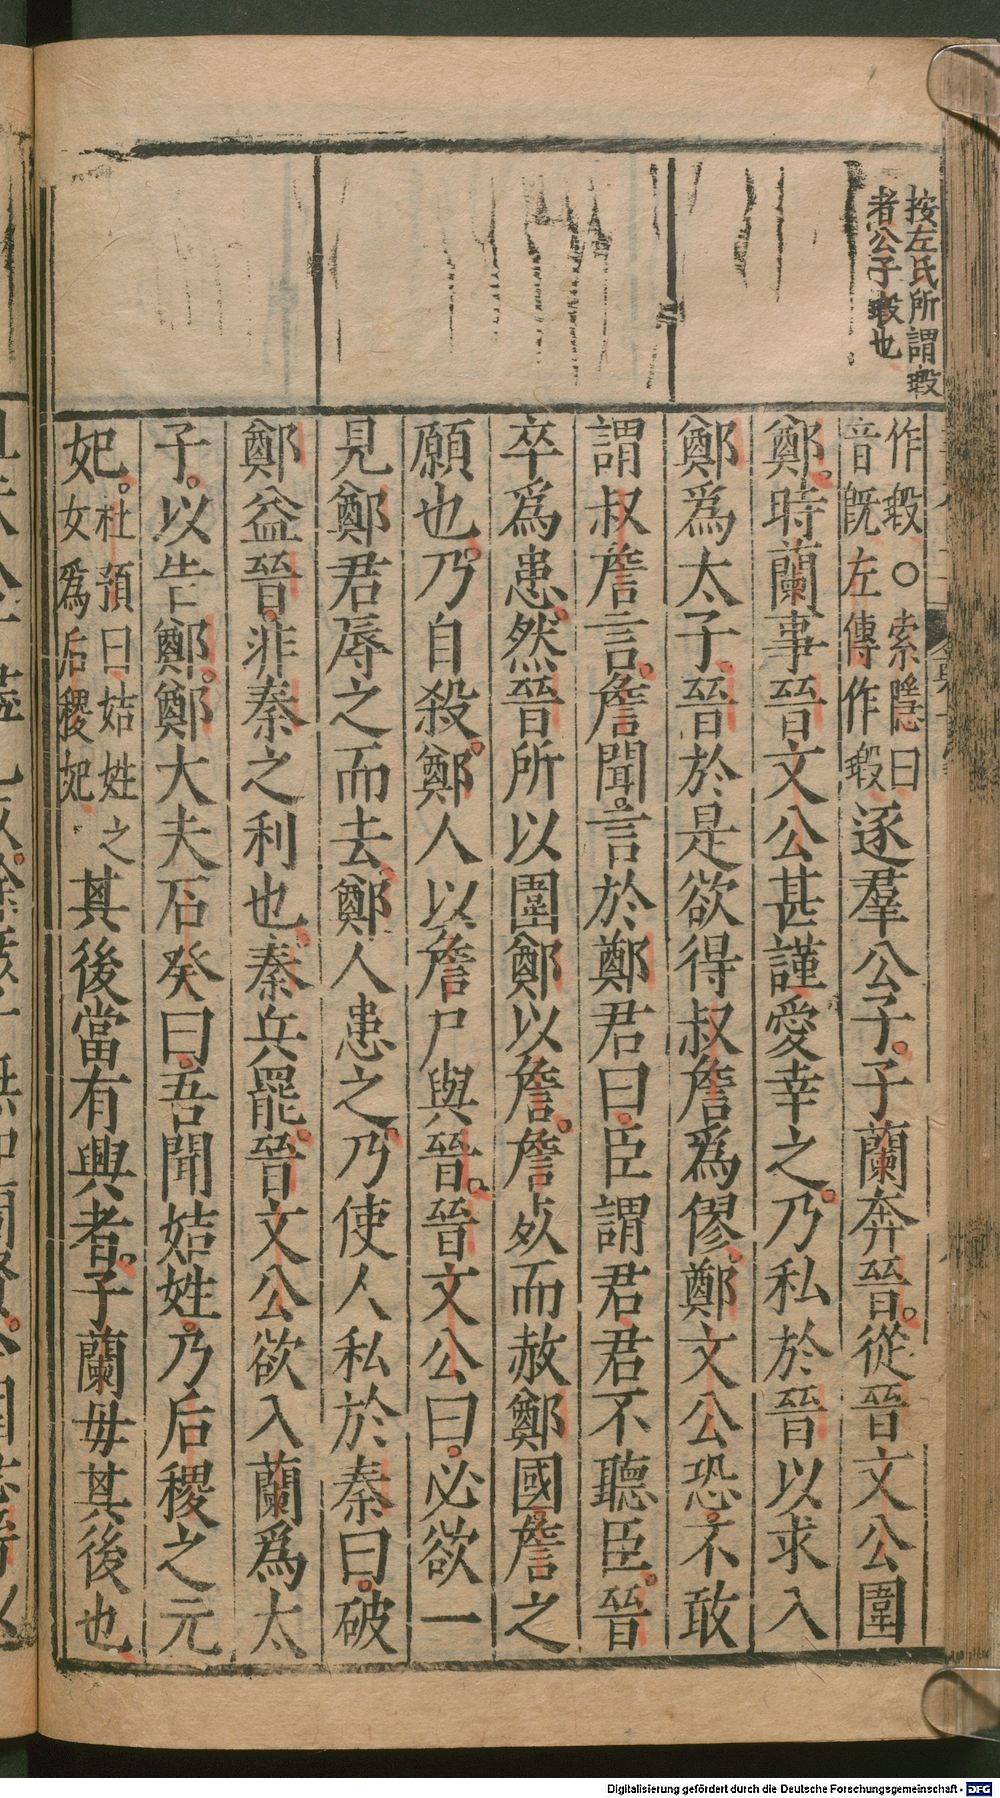 按左氏所謂瑕
者公子瑕也
作瑕○索隱曰
音旣左傳作瑕
逐羣公子。子蘭奔晉。從晉文公圍
鄭。時蘭事晉文公甚謹愛幸之。乃私於晉以求入
鄭爲太子。晉於是欲得叔詹爲僇。鄭文公恐。不敢
謂叔詹言。詹聞。言於鄭君曰。臣謂君君不聽臣。晉
卒爲患。然晉所以圍鄭以詹。詹死而赦鄭國。詹之
願也。乃自殺。鄭人以詹尸與晉。晉文公曰。必欲一
見鄭君辱之而去。鄭人患之。乃使人私於秦曰。破
鄭益晉。非秦之利也。秦兵罷。晉文公欲入蘭爲太
子。以告鄭。鄭大夫石癸曰。吾聞姞姓。乃后稷之元
妃。
杜預曰姞姓之
女爲后稷妃
其後當有興者。子蘭毋其後也
Digitalisierung gefördert durch die Deutsche Forschungsgemeinschaft - DFG